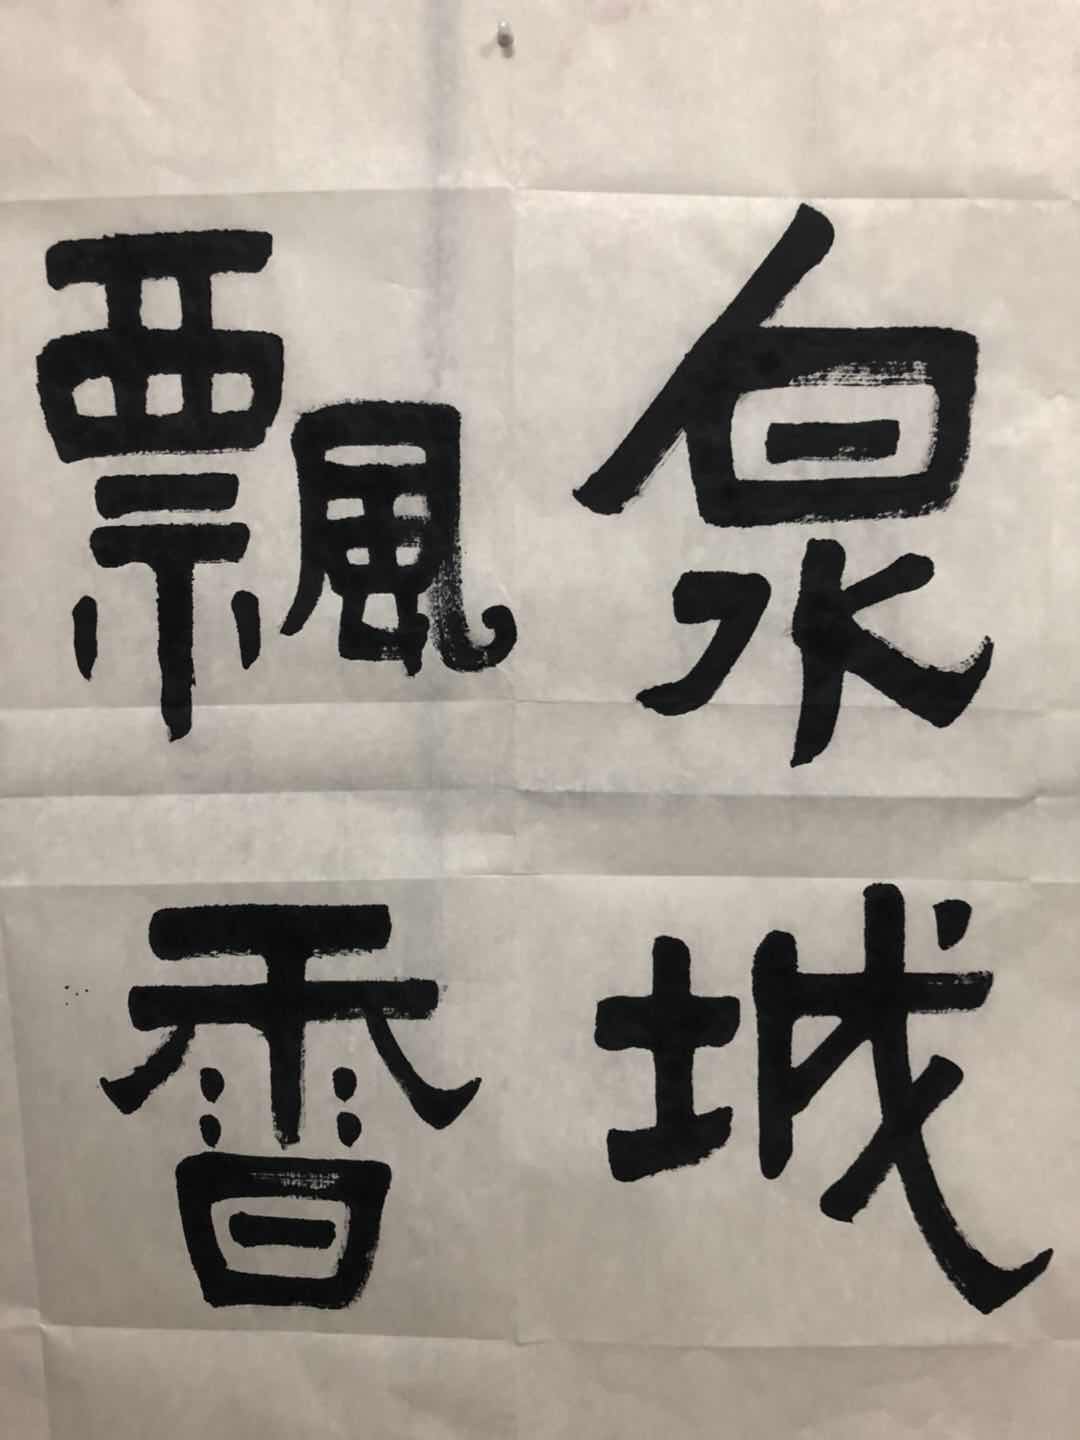 泉城
飄香